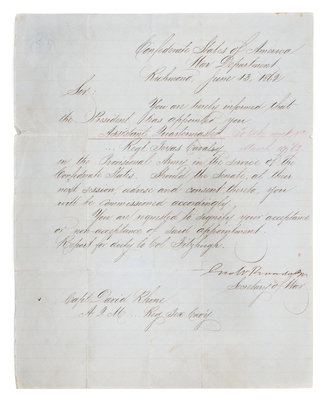 Confederate States of America
War Department
Richmond, June 13, 1862
Sir:
You are hereby informed that
the President has appointed you
Assistant Quartermaster to take rank
Regt Texas Cavalry
in the Provisional Army in the service of the
Confederate States. Should the Senate, at their
next session, advise and consent thereto, you
will be commissioned accordingly.
You are requested to signify your acceptance
or non-acceptance of said appointment.
Report for duty to Col Fitzhugh
Geo W Randolph
Secretary of War
Capt David
A. Q. M. ... Reg Tex Cavy